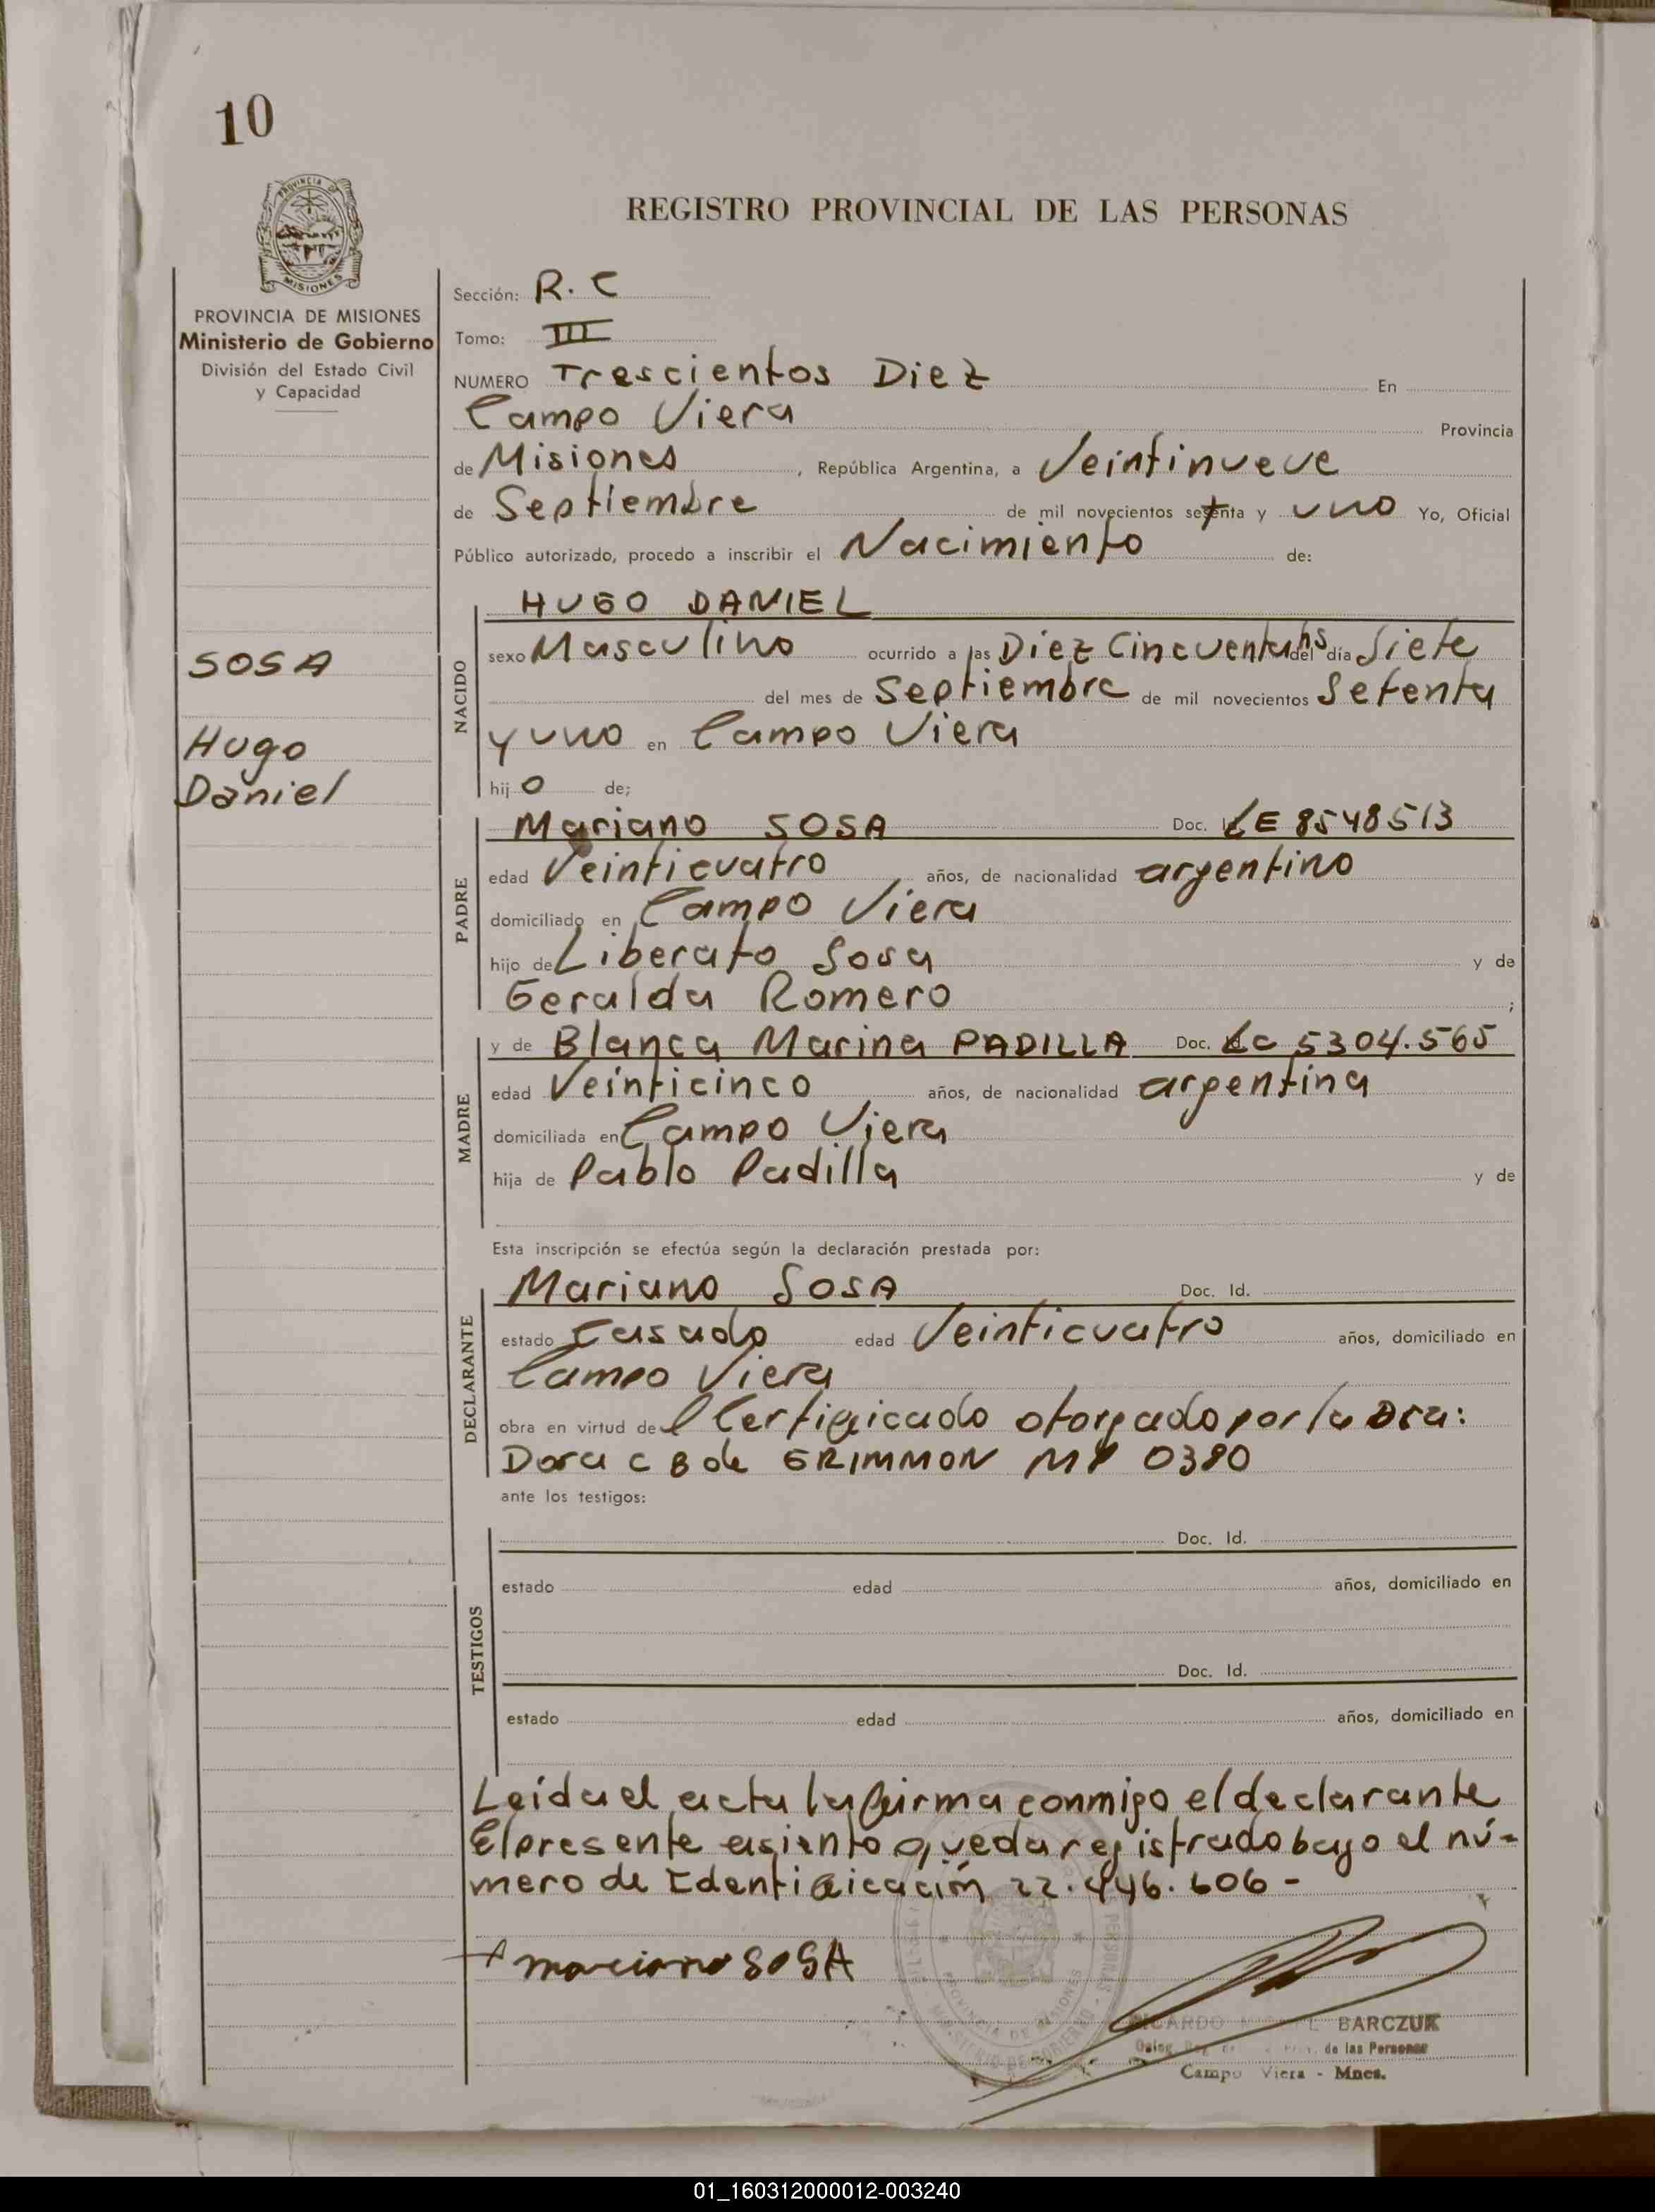 10
PROVINCIA DE
MISIONES
REGISTRO PROVINCIAL DE LAS PERSONAS
PROVINCIA DE MISIONES
Ministerio de Gobierno
División del Estado Civil
y Capacidad
SOSA
Hugo
Daniel
Sección: R. C
Tomo: III
NUMERO Trescientos Diez En
Campo Viera Provincia
de Misiones, República Argentina, a Veintinueve
de Septiembre de mil novecientos setenta y uno Yo, Oficial
Público autorizado, procedo a inscribir el Nacimiento de:
NACIDO
HUGO DANIEL
sexo Masculino ocurrido a las Diez Cincuenta hs del día Siete
del mes de Septiembre de mil novecientos Setenta
y uno en Campo Viera
hijo de;
PADRE
Mariano SOSA Doc. LE 8548513
edad Veinticuatro años, de nacionalidad argentino
domiciliado en Campo Viera
hijo de Liberato Sosa y de
Geralda Romero ;
MADRE
y de Blanca Marina PADILLA Doc. LC 5304.565
edad Veinticinco años, de nacionalidad argentina
domiciliada en Campo Viera
hija de Pablo Padilla y de
Esta inscripción se efectúa según la declaración prestada por:
DECLARANTE
Mariano SOSA Doc. Id.
estado Casado edad Veinticuatro años, domiciliado en
Campo Viera
obra en virtud del Certificado otorgado por la Dra:
Dora C B de GRIMMON MP 0380
ante los testigos:
TESTIGOS
Doc. Id.
estado edad años, domiciliado en
Doc. Id.
estado edad años, domiciliado en
Leída el acta la firma conmigo el declarante
El presente asiento queda registrado bajo el nú-
mero de Identificación 22.446.606 -
+ mariano SOSA
RICARDO BARCZUK
de las Personas
Campo Viera - Mnes.
PROVINCIA DE MISIONES
MINISTERIO DE GOBIERNO
01_160312000012-003240